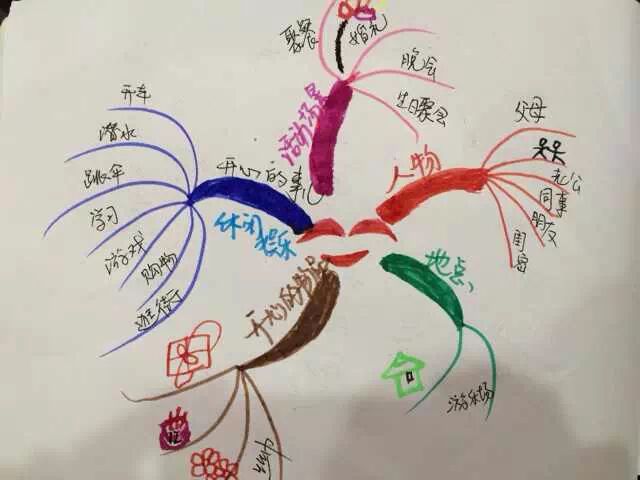 聚餐
婚礼
晚会
生日聚会
活动场景
人物
父母
老公
同事
朋友
闺密
地点
游乐场
开心的事儿
休闲娱乐
开车
潜水
跳伞
学习
游戏
购物
逛街
开心的物品